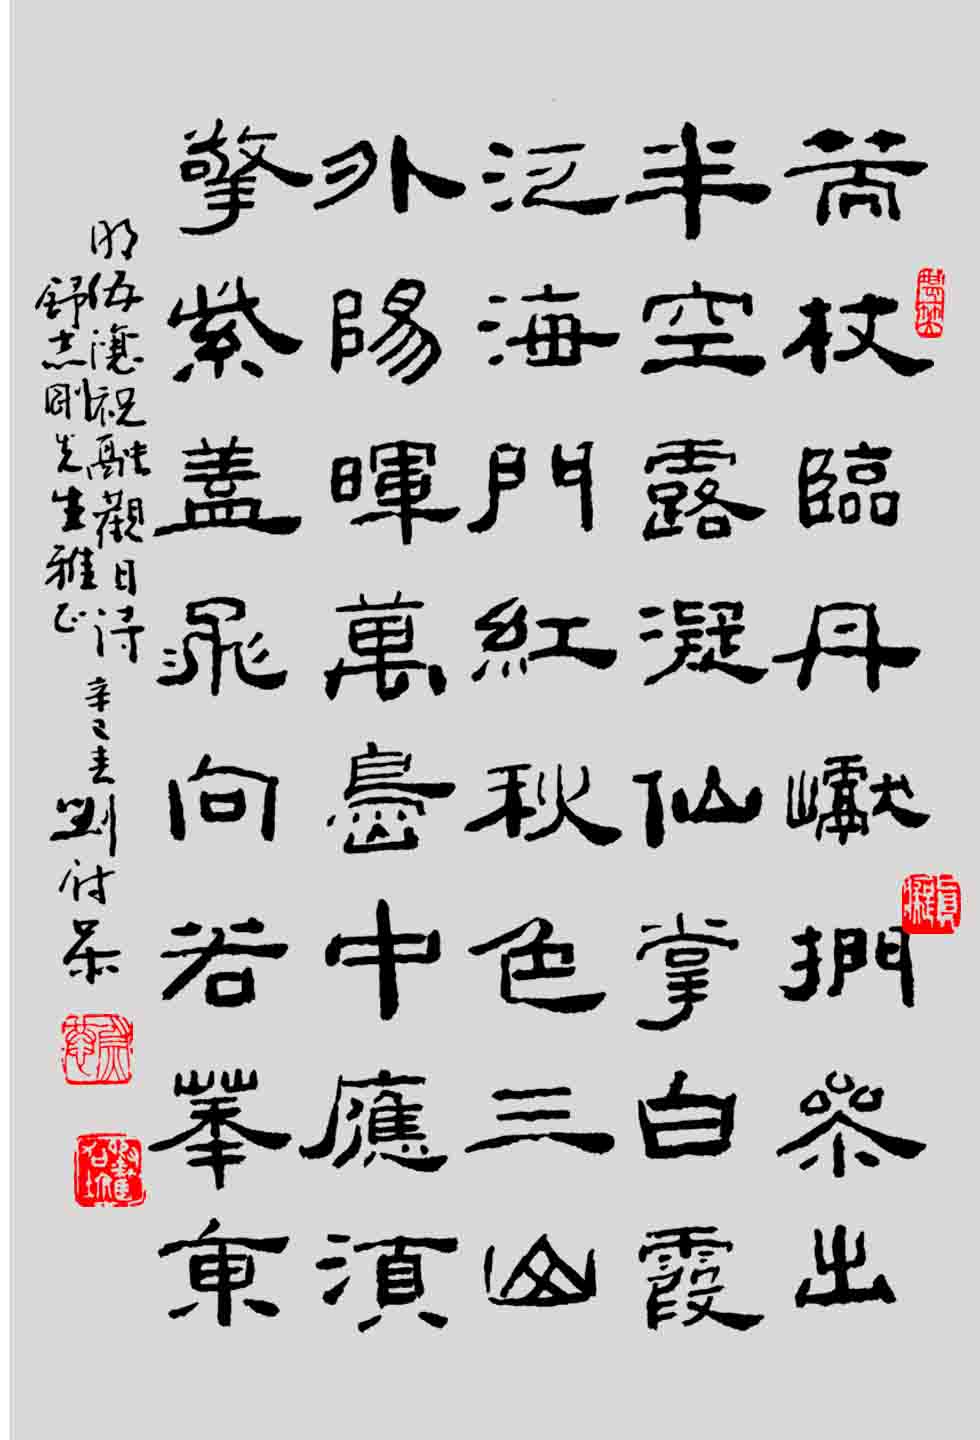 杖臨丹巘捫參出
半空露凝仙掌白霞
泛海門紅秋色三山
外陽暉萬島中應須
擎紫盖飛向若華東
明伍讓祝融觀日詩
舒志剛先生雅正
辛巳春劉